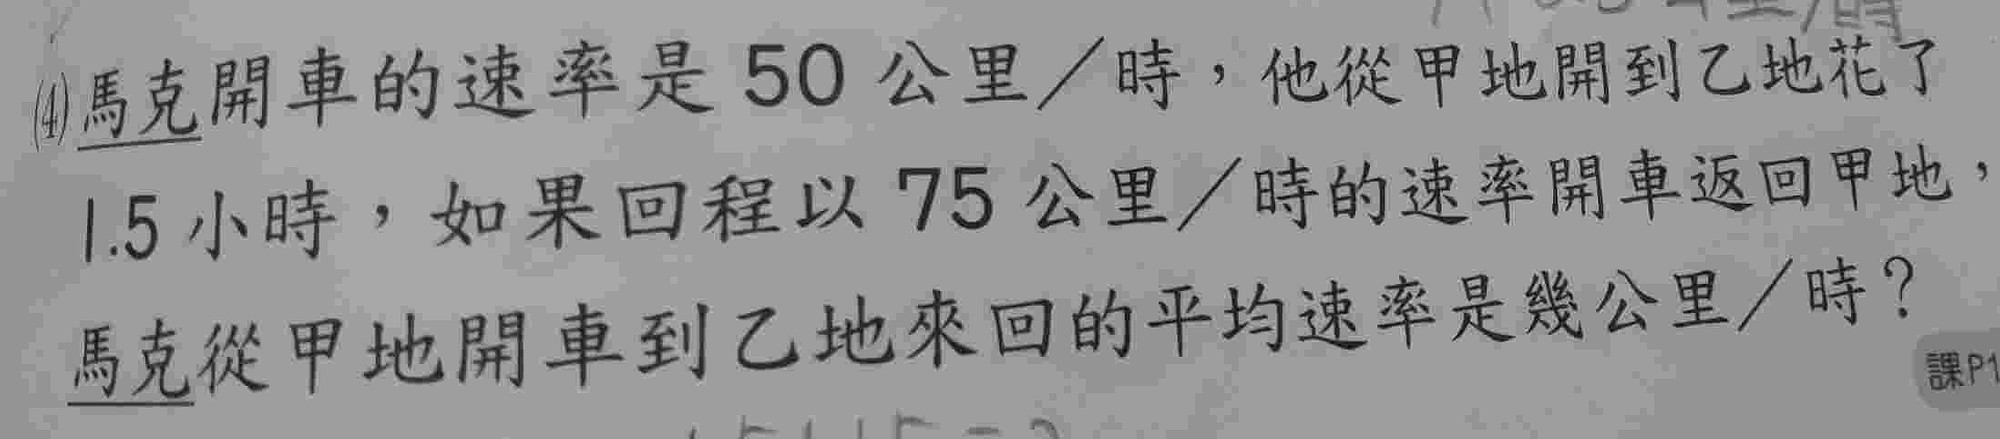 ⑷馬克開車的速率是 50 公里／時，他從甲地開到乙地花了
1.5 小時，如果回程以 75 公里／時的速率開車返回甲地，
馬克從甲地開車到乙地來回的平均速率是幾公里／時？
課P1